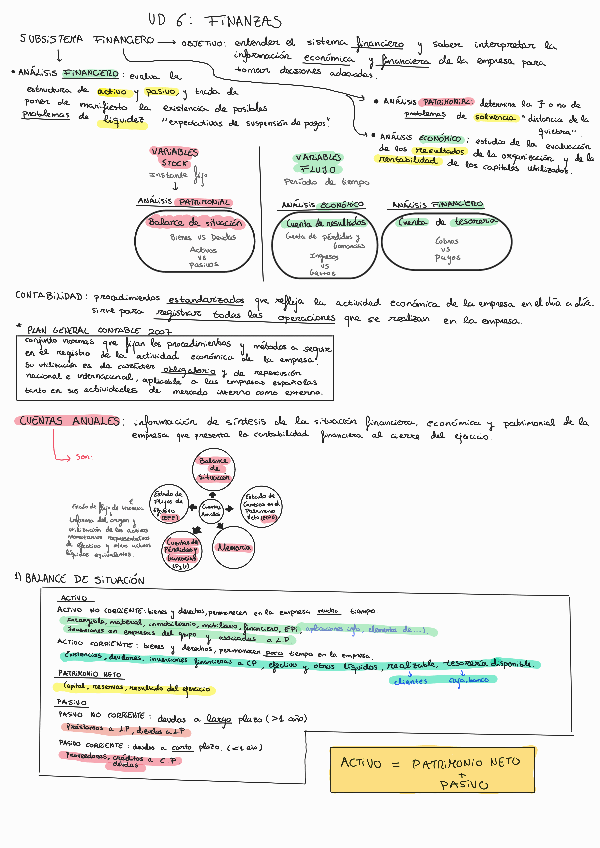 UD 6: FINANZAS
SUBSISTEMA FINANCIERO → OBJETIVO: entender el sistema financiero y saber interpretar la
información económica y financiera de la empresa para
tomar decisiones adecuadas.
• ANÁLISIS FINANCIERO: evalua la
estructura de activo y pasivo, y trata de
poner de manifiesto la existencia de posibles
problemas de liquidez "expectativas de suspensión de pagos".
• ANÁLISIS PATRIMONIAL: determina la I o no de
problemas de solvencia "distancia de la
quiebra"
• ANÁLISIS ECONÓMICO: estudio de la evaluación
de los resultados de la organización y de la
rentabilidad de los capitales utilizados.
VARIABLES
STOCK
Instante fijo
ANÁLISIS PATRIMONIAL
Balance de situación
Bienes vs Deudas
Activos
vs
Pasivos
VARIABLES
FLUJO
Período de tiempo
ANÁLISIS ECONÓMICO
Cuenta de resultados
Cuenta de pérdidas y
ganancias
Ingresos
vs
Gastos
ANÁLISIS FINANCIERO
Cuenta de tesoreria
Cobros
vs
Pagos
CONTABILIDAD: procedimientos estandarizados que refleja la actividad económica de la empresa en el día a día.
sirve para registrar todas las operaciones que se realizan en la empresa.
* PLAN GENERAL CONTABLE 2007
conjunto normas que fijan los procedimientos y métodos a seguir
en el registro de la actividad económica de la empresa.
Su utilización es de carácter obligatorio y de repercusión
nacional e internacional, aplicable a las empresas españolas
tanto en sus actividades de mercado interno como externo.
CUENTAS ANUALES: información de síntesis de la situación financiera, económica y patrimonial de la
empresa que presenta la contabilidad financiera al cierre del ejercicio.
Son:
Balance
de
Situación
Estado de
Flujos de
Efectivo
(EFE)
Estado de
Cambios en el
Patrimonio
Neto (ECPN)
Cuentas
Anuales
Cuentas de
Pérdidas y
Ganancias
(PyG)
Memoria
Informa del origen y
utilización de los activos
monetarios representativos
de efectivo y otros activos
líquidos equivalentes.
1) BALANCE DE SITUACIÓN
ACTIVO
ACTIVO NO CORRIENTE: bienes y derechos, permanecen en la empresa mucho tiempo
Intangible, material, inmobiliario, mobiliario, financiero, EPI, aplicaciones info, elementos de...).
Inversiones en empresas del grupo y asociadas a LP
ACTIVO CORRIENTE: bienes y derechos, permanecen poco tiempo en la empresa.
Existencias, deudores, inversiones financieras a CP, efectivo y otros líquidos, realizable, tesorería disponible.
clientes caja, banco
PATRIMONIO NETO
Capital, reservas, resultado del ejercicio
PASIVO
PASIVO NO CORRIENTE: deudas a largo plazo (>1 año)
Préstamos a LP, deudas a LP
PASIVO CORRIENTE: deudas a corto plazo. (<1 año)
Proveedores, créditos a CP
deudas
ACTIVO = PATRIMONIO NETO
+
PASIVO